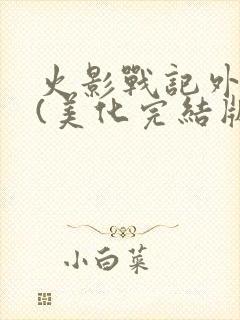 火影戰記外
(美化完結版
小白菜